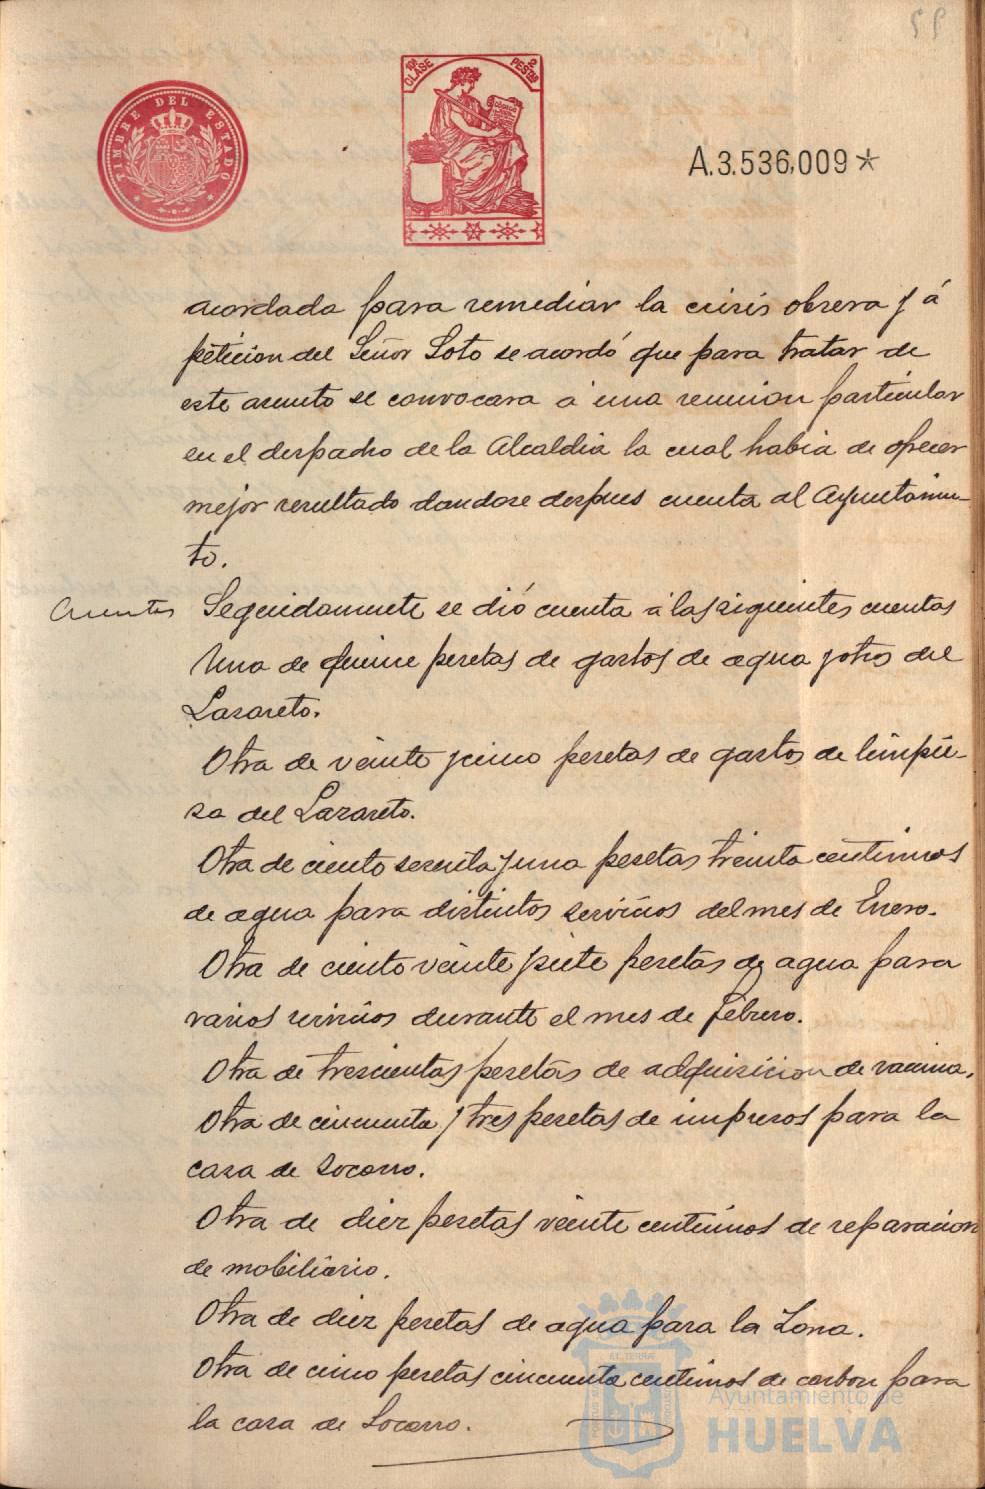 59
TIMBRE DEL ESTADO
10ª CLASE
2 PESTAS
A.3.536,009*
acordada para remediar la crisis obrera y á
peticion del Señor Soto se acordó que para tratar de
este asunto se convocara á una reunion particular
en el despacho de la Alcaldia la cual habia de ofrecer
mejor resultado dandose despues cuenta al Ayuntamien-
to.
Cuentas
Seguidamente se dió cuenta á las siguientes cuentas
Una de quince pesetas de gastos de agua y otros del
Lazareto.
Otra de veinte y cinco pesetas de gastos de limpie-
sa del Lazareto.
Otra de ciento sesenta y una pesetas treinta centimos
de agua para distintos servicios del mes de Enero.
Otra de ciento veinte y siete pesetas de agua para
varios servicios durante el mes de Febrero.
Otra de trescientas pesetas de adquisicion de vacuna.
Otra de cincuenta y tres pesetas de impresos para la
casa de Socorro.
Otra de diez pesetas veinte centimos de reparacion
de mobiliario.
Otra de diez pesetas de agua para la Zona.
Otra de cinco pesetas cincuenta centimos de carbon para
la casa de Socorro.
Ayuntamiento de
HUELVA